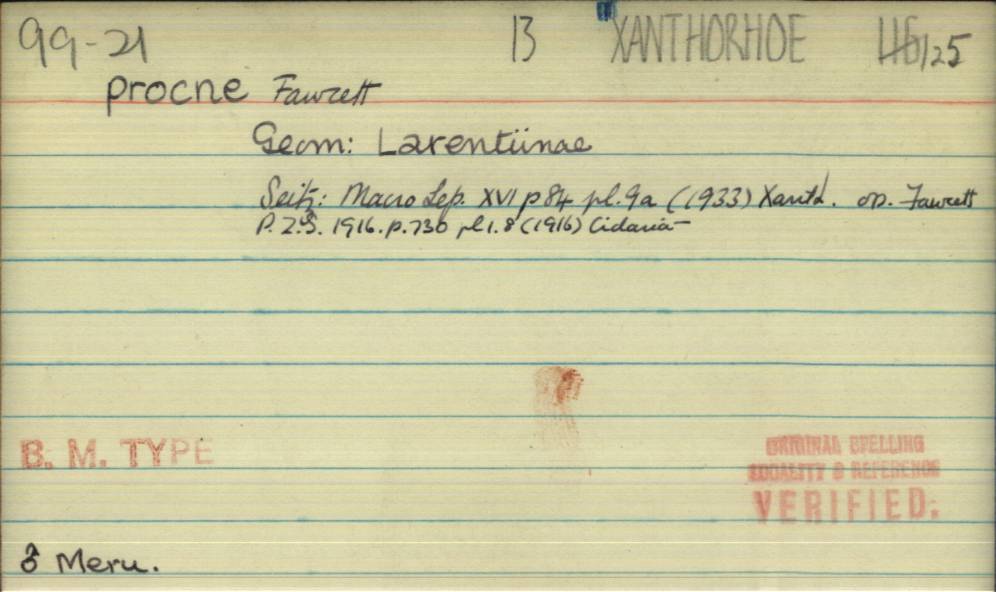 99-21 13 XANTHORHOE 116/125
procne Fawcett
Geom: Larentiinae
Seitz: Macro Lep. XVI p84 pl.9a (1933) Xanth. op. Fawcett
P.Z.S. 1916. p.730 pl1.8 (1916) Cidaria
B. M. TYPE
ORIGINAL SPELLING
LOCALITY & REFERENCE
VERIFIED.
♂ Meru.